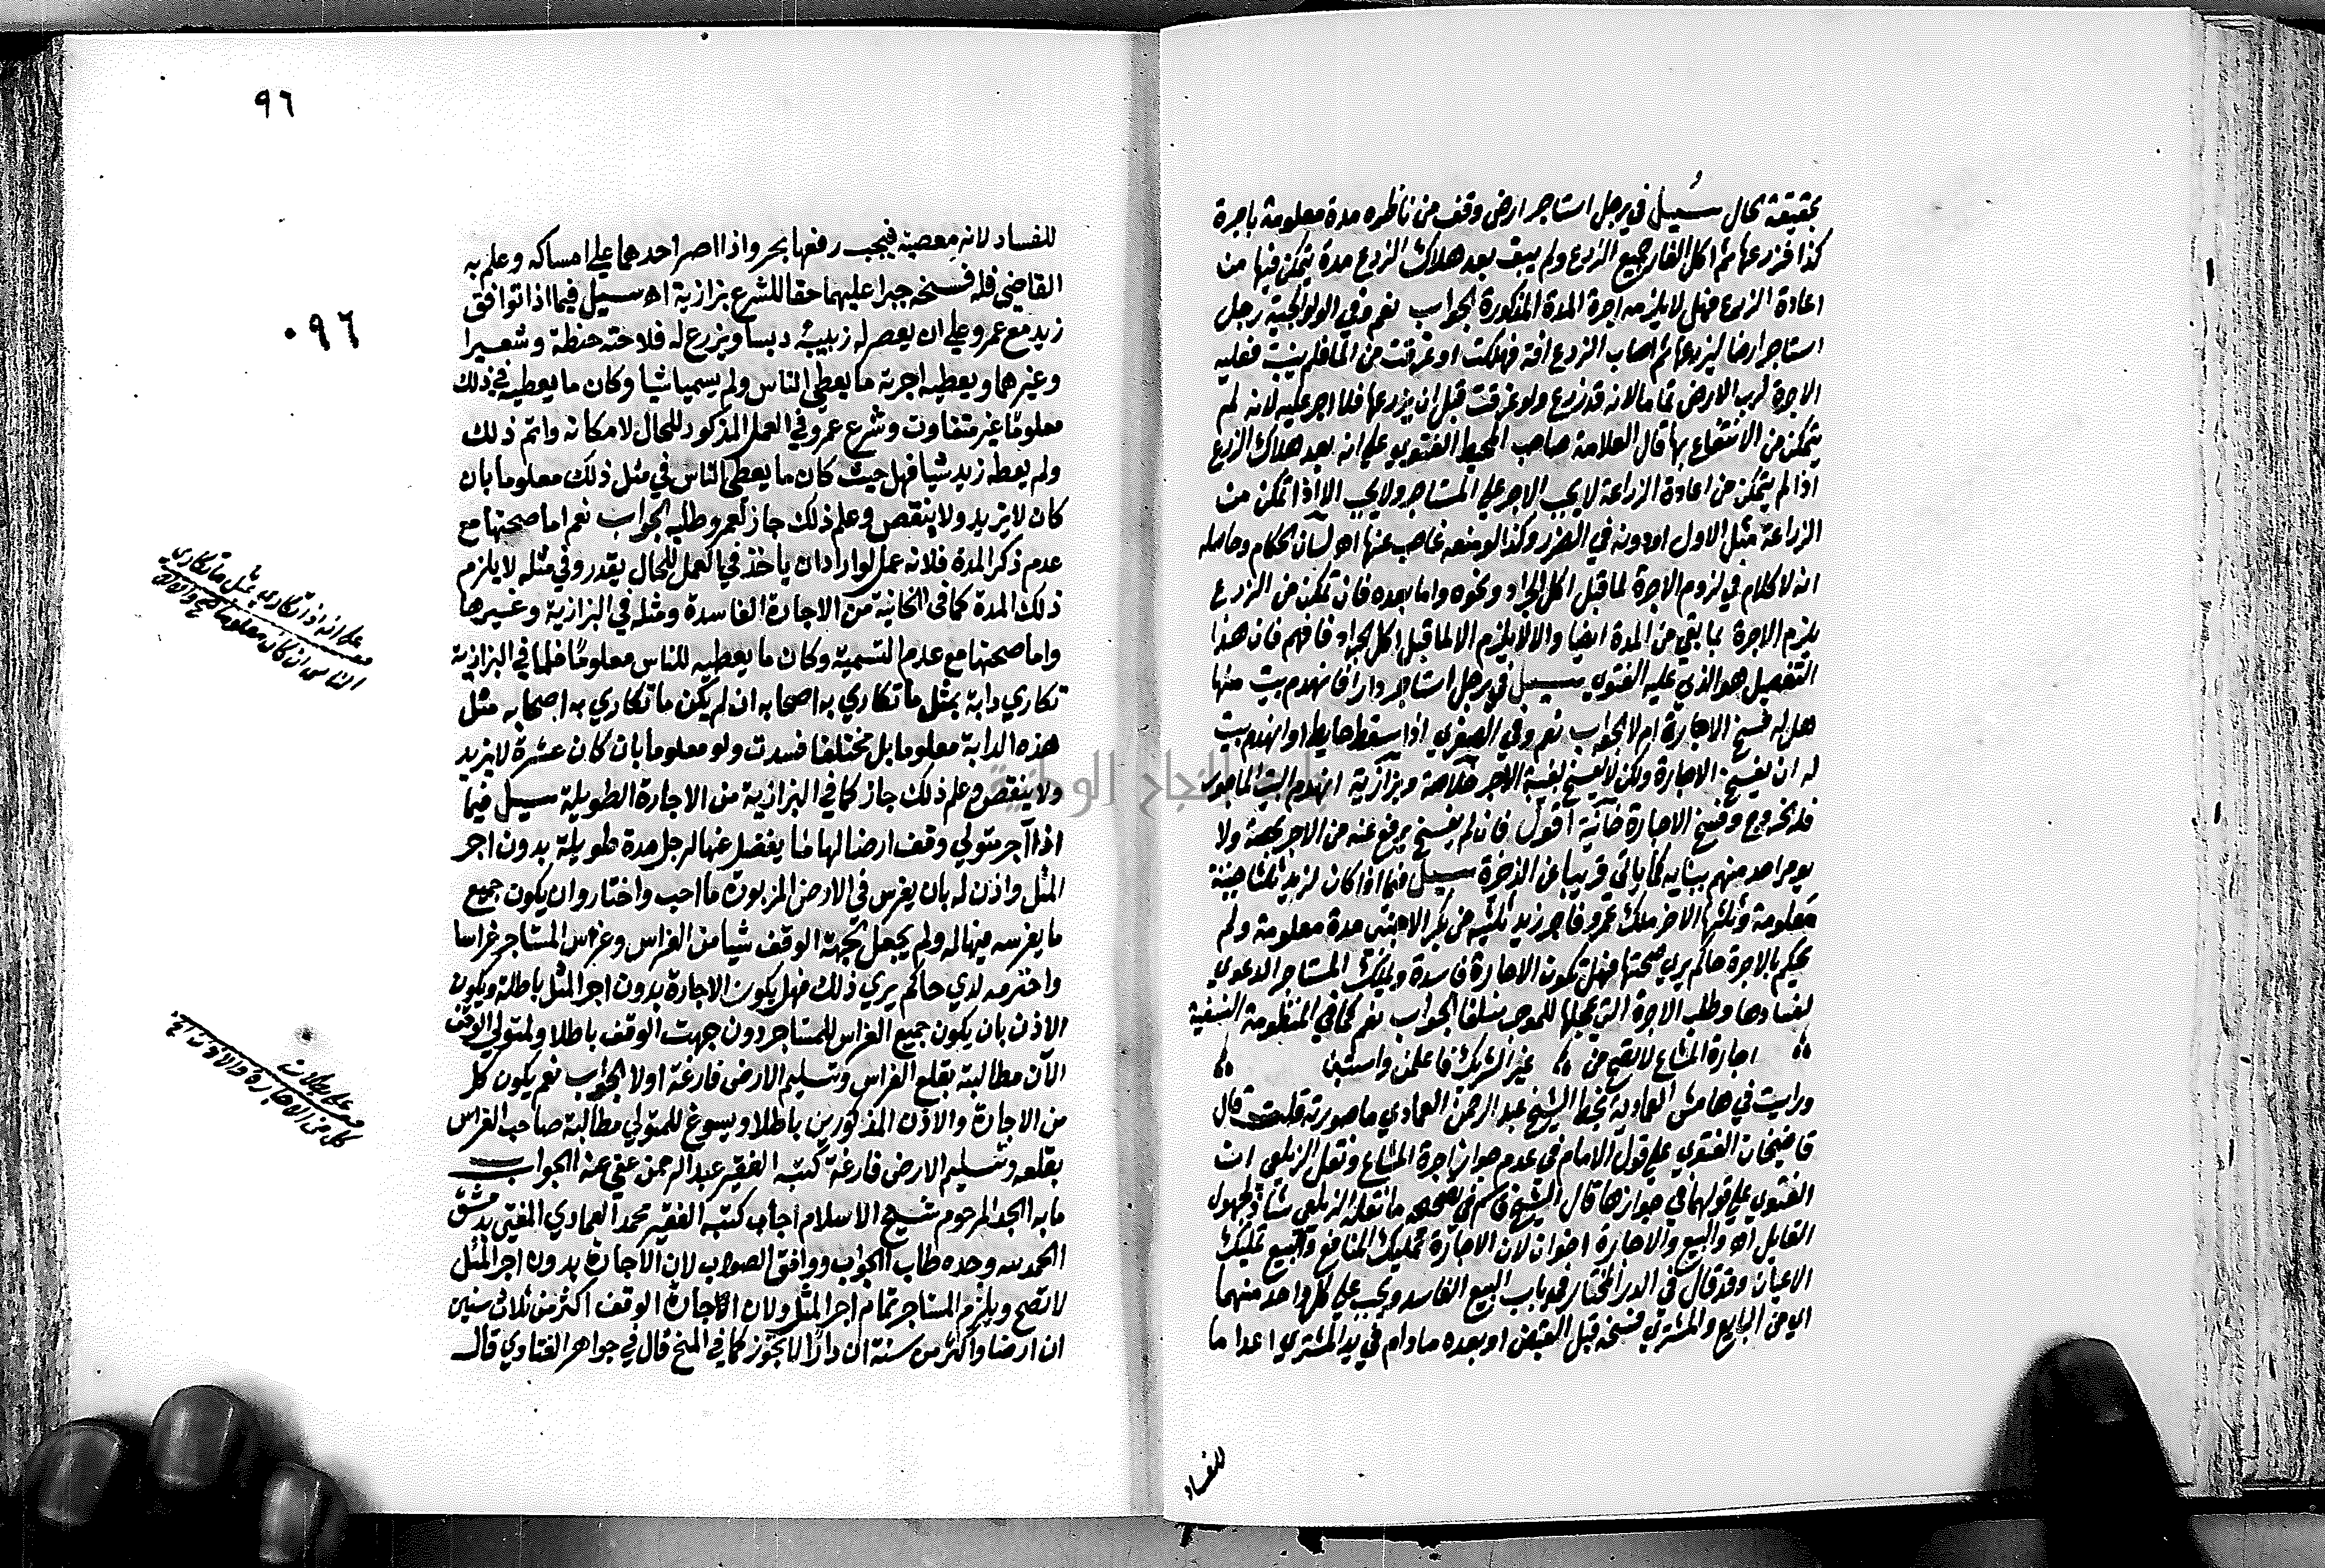 بحقيقة الحال سئيل في رجل استاجر ارض وقف من ناظره مدة معلومة باجرة
كذا فزرعها ثم اكل الفار جميع الزرع ولم يبق بعد هلاك الزرع مدة يتمكن فيها من
اعادة الزرع فهل لا يلزمه اجرة المدة المذكورة الجواب نعم وفي الولوالجية رجل
استاجر ارضا ليزرعها ثم اصاب الزرع افة فهلكت او غرقت من الما فلم ينبت فعليه
الاجرة لرب الارض تماما لانه قد زرع ولو غرقت قبل ان يزرعها فلا اجر عليه لانه لم
يتمكن من الانتفاع بها قال العلامة صاحب المحيط الفتوي علي انه بعد هلاك الزرع
اذا لم يتمكن من اعادة الزراعة لا يجب الاجر علي المستاجر ولا يجب الا اذا تمكن من
الزراعة مثل الاول او دونه في الضرر وكذا لو منعه غاصب عنها اهـ لسان الحكام وحاصله
انه لا كلام في لزوم الاجرة لما قبل اكل الجراد ونحوه واما بعده فان تمكن من الزرع
يلزم الاجرة بما بقي من المدة ايضا والا لا يلزم الا لما قبل اكل الجراد فافهم فان هذا
التفصيل هو الذي عليه الفتوي سيـيل في رجل استاجر دارا فانهدم بيت منها
هل له فسخ الاجارة ام لا الجواب نعم وفي الصغري اذا سقط حايط او انهدم بيت
له ان يفسخ الاجارة ولكن لا يفسخ بغيبة الاجر خلاصة وبزازية انهدم البيت الماجور
فله نحو وج وفسخ الاجارة خانية اقول فان لم يفسخ يرفع عنه من الاجر بحصة ولا
يومر احد منهم ببنايه كما ياتي قريبا عن الذخرة سيـيل فيما اذا كان لزيد ثلثا جنينة
معلومة وثلثها الاخر ملك عمرو فاجر زيد ثلثيه من بكر الاجنبي مدة معلومة ولم
يحكم بالاجرة حاكم يري صحتها فهل تكون الاجارة فاسدة ويملك المستاجر الدعوي
بفسادها وطلب الاجرة التي عجلها للموجر سلفا الجواب نعم كما في المنظومة النسفية
اجارة المشاع لا تصح من غير الشريك فاعلمن واستبن
ورايت في هامش العمادية بخط الشيخ عبد الرحمن العمادي ما صورته قلت قال
قاضيخان الفتوي علي قول الامام في عدم جواز اجرة المشاع ونقل الزيلعي ان
الفتوي علي قولهما في جوازها قال الشيخ قاسم في تصحيحه ما نقله الزيلعي شاذ مجهول
القايل اهـ والبيع والاجارة اخوان لان الاجارة تمليك المنافع والبيع تمليك
الاعيان وقد قال في الدر المختار في باب البيع الفاسد ويجب علي كل واحد منهما
اي من البايع والمشتري فسخه قبل القبض او بعده ما دام في يد المشتري اعداما
للفساد
٩٦
٠٩٦
للفساد لانه معصية فيجب رفعها بحر واذا اصر احدهما علي امساكه وعلم به
القاضي فله فسخه جبرا عليهما حقا للشرع بزازية اهـ سيـيل فيما اذا توافق
زيد مع عمرو علي ان يعصر له زبيبه دبسا ويزرع له فلاحته حنطة وشعيرا
وغيرهما ويعطيه اجرته ما يعطي الناس ولم يسميا شيا وكان ما يعطيه في ذلك
معلوما غير متفاوت وشرع عمرو في العمل المذكور للحال لامكانه واتم ذلك
ولم يعطه زيد شيا فهل حيث كان ما يعطي الناس في مثل ذلك معلوما بان
كان لا يزيد ولا ينقص وعلم ذلك جاز لعمرو طلبه الجواب نعم اما صحتها مع
عدم ذكر المدة فلانه عمل لو اراد ان ياخذ في العمل للحال يقدر وفي مثله لا يلزم
ذلك المدة كما في الخانية من الاجارة الفاسدة ومثله في البزازية وغيرها
واما صحتها مع عدم التسمية وكان ما يعطيه للناس معلوما فلما في البزازية
تكاري دابة بمثل ما تكاري به اصحابه ان لم يكن ما تكاري به اصحابه مثل
هذه الدابة معلوما بل مختلفا فسدت ولو معلوما بان كان عشرة لا يزيد
ولا ينقص وعلم ذلك جاز كما في البزازية من الاجارة الطويلة سيـيل فيما
اذا آجر متولي وقف ارضا لها فنا يفضل عنها لرجل مدة طويلة بدون اجر
المثل واذن له بان يغرس في الارض المزبورة ما احب واختار وان يكون جميع
ما يغرسه فيها له ولم يجعل لجهة الوقف شيا من الغراس وغرس المستاجر غراسا
واحترمه لدي حاكم يري ذلك فهل يكون الاجارة بدون اجر المثل باطلة ويكون
الاذن بان يكون جميع الغراس للمستاجر دون جهت الوقف باطلا ولمتولي الوقف
الآن مطالبته بقلع الغراس وتسليم الارض فارغة اولا الجواب نعم يكون كل
من الاجارة والاذن المذكورين باطلا ويسوغ للمتولي مطالبة صاحب الغراس
بقلعه وتسليم الارض فارغة كتبه الفقير عبد الرحمن عفي عنه الجواب
ما به الجد المرحوم شيخ الاسلام اجاب كتبه الفقير محمد العمادي المفتي بدمشق
الحمد لله وحده طاب الجواب ووافق الصواب لان الاجارة بدون اجر المثل
لا تصح ويلزم المستاجر تمام اجر المثل ولان الاجارة الوقف اكثر من ثلاث سنين
ان ارضا واكثر من سنة ان دارا لا تجوز كما في المنح قال في جواهر الفتاوي قال
علي انه اذا تكاري بمثل ما تكاري
الناس ان كان معلوما صح والا لا
كل من الاجارة والاذن
جامعة النجاح الوطنية